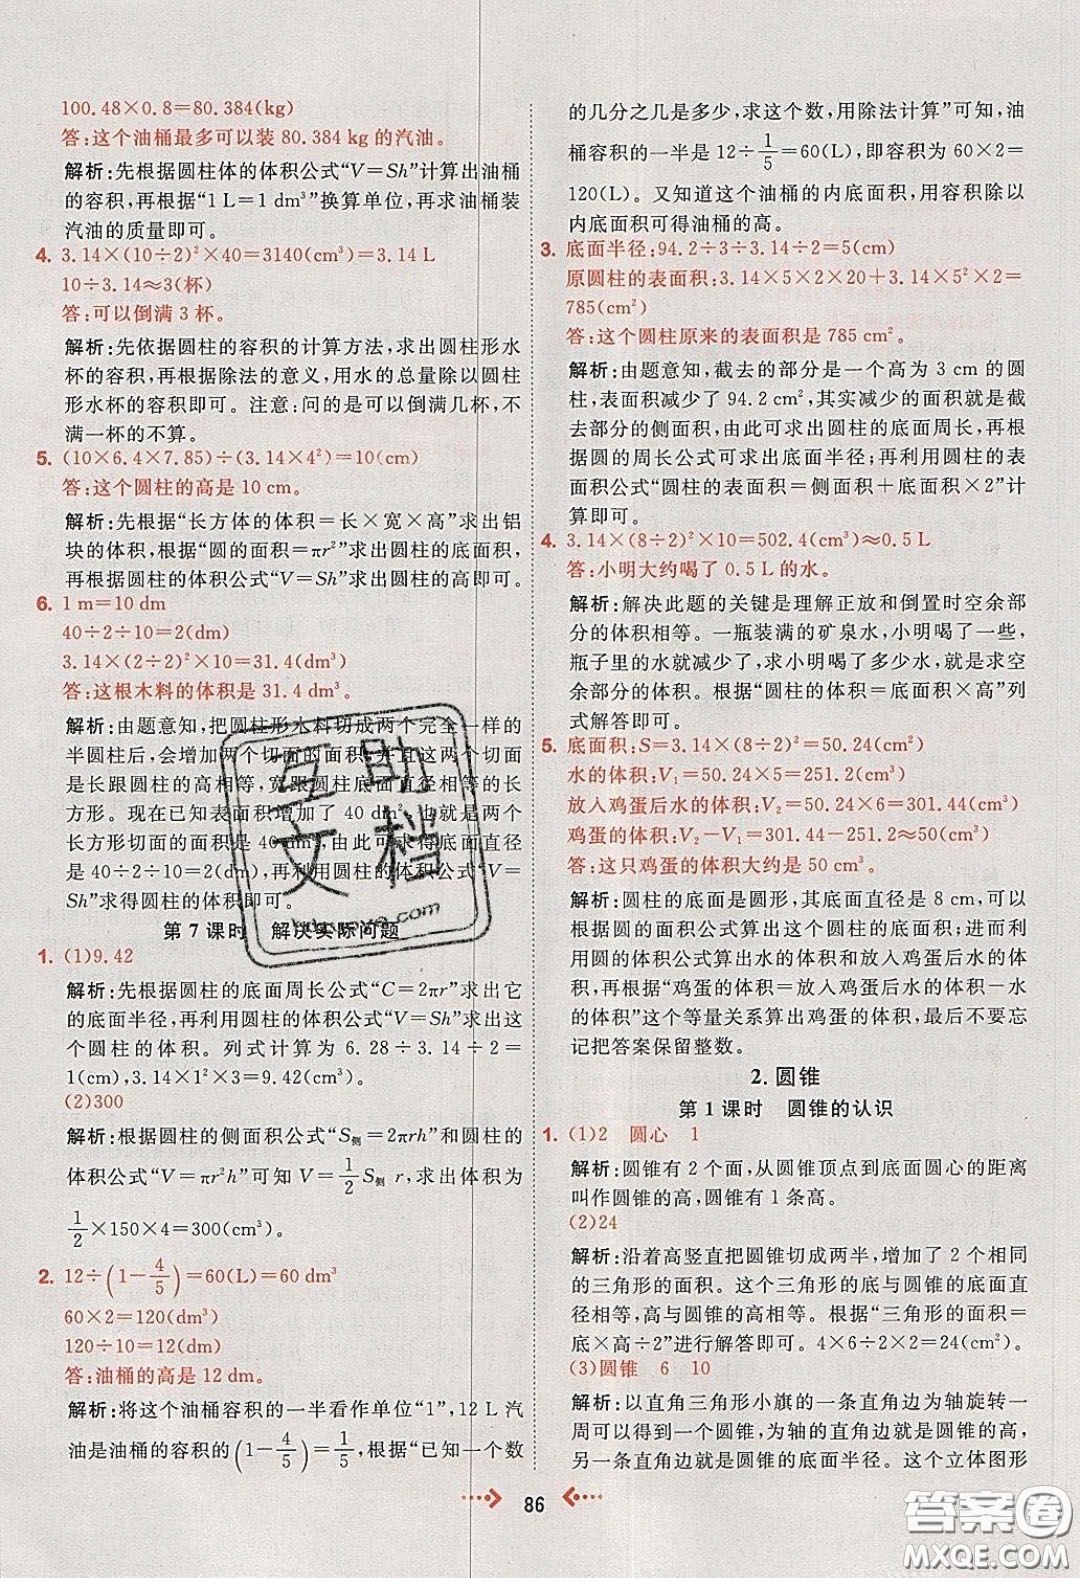 100.48×0.8=80.384(kg)
答:这个油桶最多可以装 80.384 kg 的汽油。
解析:先根据圆柱体的体积公式“V=Sh”计算出油桶
的容积,再根据“1 L=1 dm³”换算单位,再求油桶装
汽油的质量即可。
4. 3.14×(10÷2)²×40=3140(cm³)=3.14 L
10÷3.14≈3(杯)
答:可以倒满 3 杯。
解析:先依据圆柱的容积的计算方法,求出圆柱形水
杯的容积,再根据除法的意义,用水的总量除以圆柱
形水杯的容积即可。注意:问的是可以倒满几杯,不
满一杯的不算。
5. (10×6.4×7.85)÷(3.14×4²)=10(cm)
答:这个圆柱的高是 10 cm。
解析:先根据“长方体的体积=长×宽×高”求出铝
块的体积,根据“圆的面积=πr²”求出圆柱的底面积,
再根据圆柱的体积公式“V=Sh”求出圆柱的高即可。
6. 1 m=10 dm
40÷2÷10=2(dm)
3.14×(2÷2)²×10=31.4(dm³)
答:这根木料的体积是 31.4 dm³。
解析:由题意知,把圆柱形木料切成两个完全一样的
半圆柱后,会增加两个切面的面积,并且这两个切面
是长跟圆柱的高相等,宽跟圆柱底面直径相等的长
方形。现在已知表面积增加了 40 dm²,也就是两个
长方形切面的面积是 40 dm²,那么圆柱的底面直径
是 40÷2÷10=2(dm),再利用圆柱的体积公式“V=
Sh”求得圆柱的体积即可。
第 7 课时 解决实际问题
1. (1)9.42
解析:先根据圆柱的底面周长公式“C=2πr”求出它
的底面半径,再利用圆柱的体积公式“V=Sh”求出这
个圆柱的体积。列式计算为 6.28÷3.14÷2=
1(cm),3.14×1²×3=9.42(cm³)。
(2)300
解析:根据圆柱的侧面积公式“S侧=2πrh”和圆柱的
体积公式“V=πr²h”可知 V=1/2 S侧 r,求出体积为
1/2×150×4=300(cm³)。
2. 12÷(1-4/5)=60(L)=60 dm³
60×2=120(dm³)
120÷10=12(dm)
答:油桶的高是 12 dm。
解析:将这个油桶容积的一半看作单位“1”,12 L 汽
油是油桶的容积的(1-4/5)=1/5,根据“已知一个数
的几分之几是多少,求这个数,用除法计算”可知,油
桶容积的一半是 12÷1/5=60(L),即容积为 60×2=
120(L)。又知道这个油桶的内底面积,用容积除以
内底面积可得油桶的高。
3. 底面半径:94.2÷3÷3.14÷2=5(cm)
原圆柱的表面积:3.14×5×2×20+3.14×5²×2=
785(cm²)
答:这个圆柱原来的表面积是 785 cm²。
解析:由题意知,截去的部分是一个高为 3 cm 的圆
柱,表面积减少了 94.2 cm²,其实减少的面积就是截
去部分的侧面积,由此可求出圆柱的底面周长,再根
据圆的周长公式可求出底面半径;再利用圆柱的表
面积公式“圆柱的表面积=侧面积+底面积×2”计
算即可。
4. 3.14×(8÷2)²×10=502.4(cm³)≈0.5 L
答:小明大约喝了 0.5 L 的水。
解析:解决此题的关键是理解正放和倒置时空余部
分的体积相等。一瓶装满的矿泉水,小明喝了一些,
瓶子里的水就减少了,求小明喝了多少水,就是求空
余部分的体积。根据“圆柱的体积=底面积×高”列
式解答即可。
5. 底面积:S=3.14×(8÷2)²=50.24(cm²)
水的体积:V₁=50.24×5=251.2(cm³)
放入鸡蛋后水的体积:V₂=50.24×6=301.44(cm³)
鸡蛋的体积:V₂-V₁=301.44-251.2≈50(cm³)
答:这只鸡蛋的体积大约是 50 cm³。
解析:圆柱的底面是个圆形,底面直径是 8 cm,可以
根据圆的面积公式算出圆柱的底面积;进而分别利
用圆柱的体积公式算出水的体积和放入鸡蛋后水的
体积,再根据“鸡蛋的体积=放入鸡蛋后水的体积-水
的体积”这个等量关系算出鸡蛋的体积,最后不要忘
记把答案保留整数。
2. 圆锥
第 1 课时 圆锥的认识
1. (1)2 圆心 1
解析:圆锥有 2 个面,从圆锥顶点到底面圆心的距离
叫作圆锥的高,圆锥有 1 条高。
(2)24
解析:沿着高竖直把圆锥切成两半,增加了 2 个相同
的三角形的面积。这个三角形的底与圆锥的底面直
径相等,高与圆锥的高相等。根据“三角形的面积=
底×高÷2”进行解答即可。4×6÷2×2=24(cm²)。
(3)圆锥 6 10
解析:以直角三角形小旗的一条直角边为轴旋转一
周可以得到一个圆锥,为轴的直角边就是圆锥的高,
另一条直角边就是圆锥的底面半径。这个立体图形
86
互助
文档
答案圈
MXQE.COM